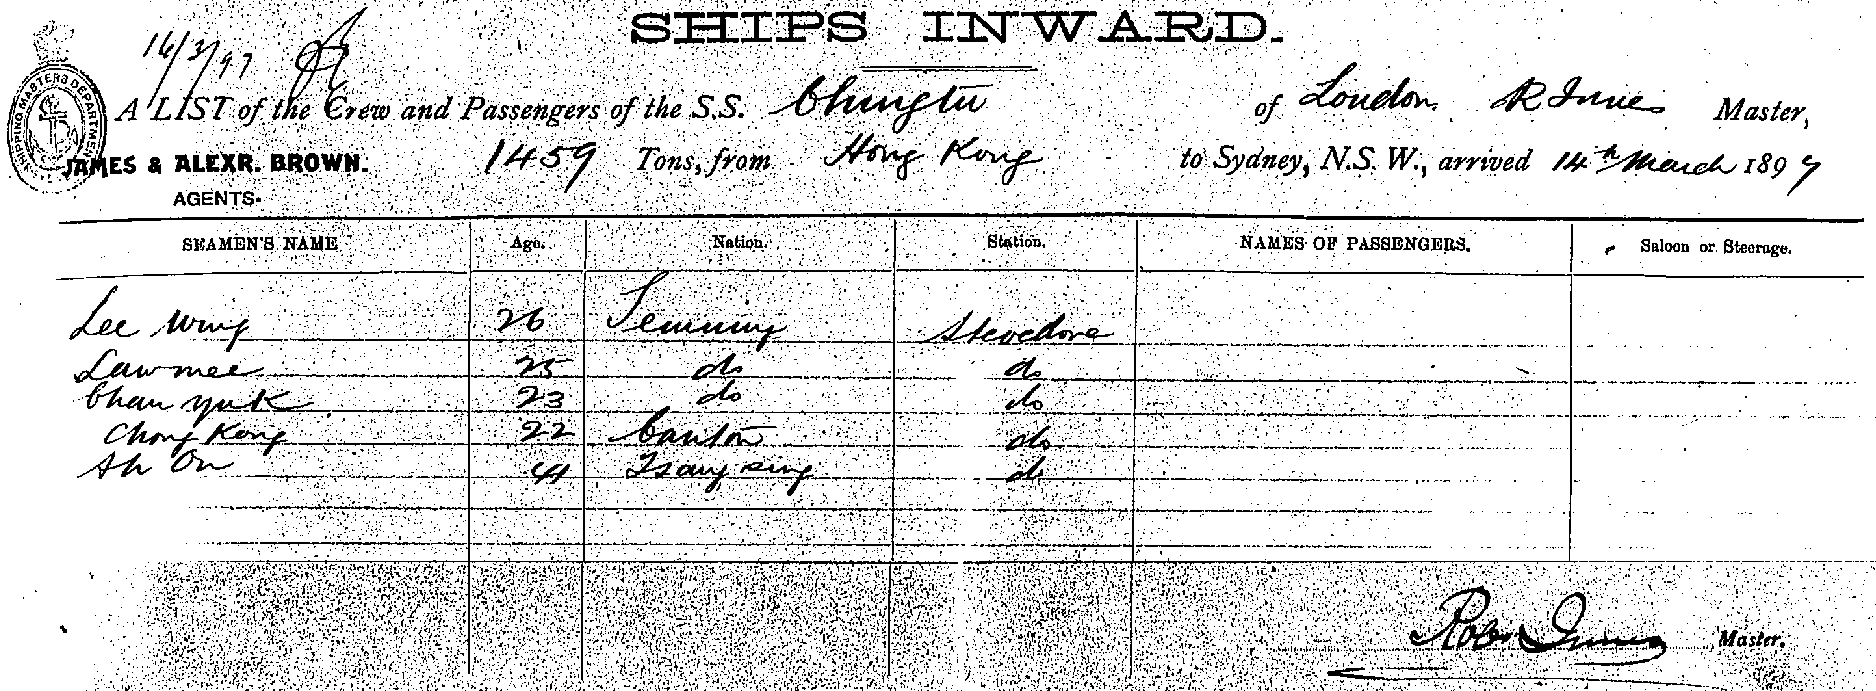 SHIPS INWARD.
16/3/97
SHIPPING MASTERS DEPARTMENT
A LIST of the Crew and Passengers of the S.S. Chingtu of London R Innes Master,
JAMES & ALEXR. BROWN. 1459 Tons, from Hong Kong to Sydney, N.S.W., arrived 14th March 1897
AGENTS.
SEAMEN'S NAME Age. Nation. Station. NAMES OF PASSENGERS. Saloon or Steerage.
Lee Wing 26 Stevedore
Law mee 25 do do
Chan Yuk 23 do do
Chong Kong 22 Canton do
Ah On 41 do
Robt Innes Master.